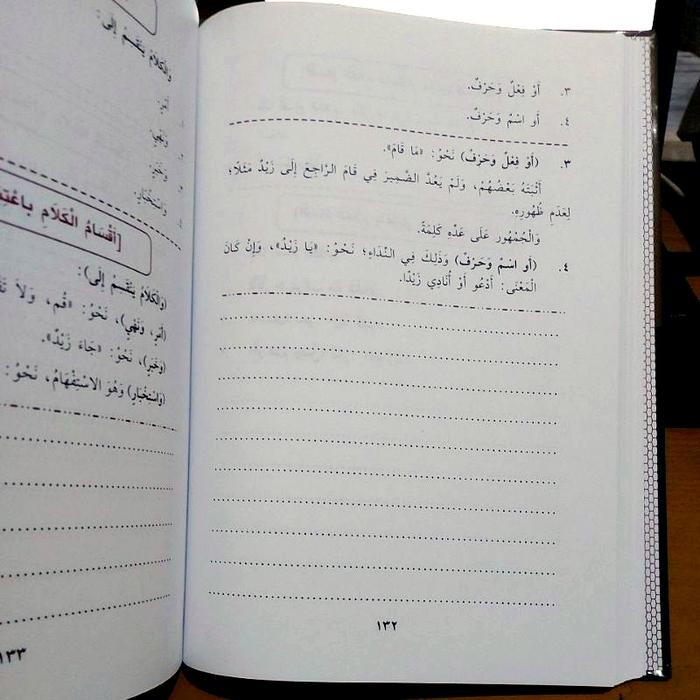 ٣. أَوْ فِعْلٌ وَحَرْفٌ.
٤. أَو اسْمٌ وَحَرْفٌ.
٣. (أَوْ فِعْلٌ وَحَرْفٌ) نَحْوُ: «مَا قَامَ».
أَثْبَتَهُ بَعْضُهُمْ، وَلَمْ يَعُدَّ الضَّمِيرَ فِي قَامَ الرَّاجِعَ إِلَى زَيْدٍ مَثَلًا؛
لِعَدَمِ ظُهُورِهِ.
وَالْجُمْهُورِ عَلَى عَدِّهِ كَلِمَةً.
٤. (أَو اسْمٌ وَحَرْفٌ) وَذَلِكَ فِي النِّدَاءِ؛ نَحْوُ: «يَا زَيْدُ»، وَإِنْ كَانَ
الْمَعْنَى: أَدْعُو أَوْ أُنَادِي زَيْدًا.
١٣٢
وَالْكَلَامُ يَنْقَسِمُ إِلَى:
أَمْرٍ.
وَنَهْيٍ.
وَخَبَرٍ.
وَاسْتِخْبَارٍ.
[أَقْسَامُ الْكَلَامِ
(وَالْكَلَامُ يَنْقَسِمُ إِلَى):
(أَمْرٍ، وَنَهْيٍ)، نَحْوُ: «قُمْ، وَلَا
(وَخَبَرٍ)، نَحْوُ: «جَاءَ زَيْدٌ».
(وَاسْتِخْبَارٍ) وَهُوَ الِاسْتِفْهَامُ، نَحْوُ:
١٣٣